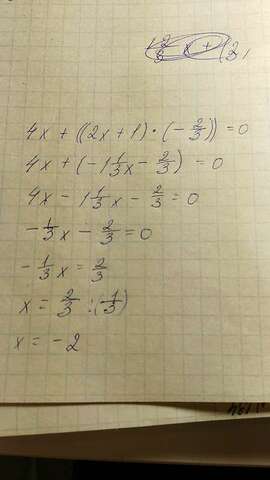 4x + ((2x + 1) · (-2/3)) = 0
4x + (-1 1/3x - 2/3) = 0
4x - 1 1/3x - 2/3 = 0
-1/3x - 2/3 = 0
-1/3x = 2/3
x = 2/3 : (-1/3)
x = -2